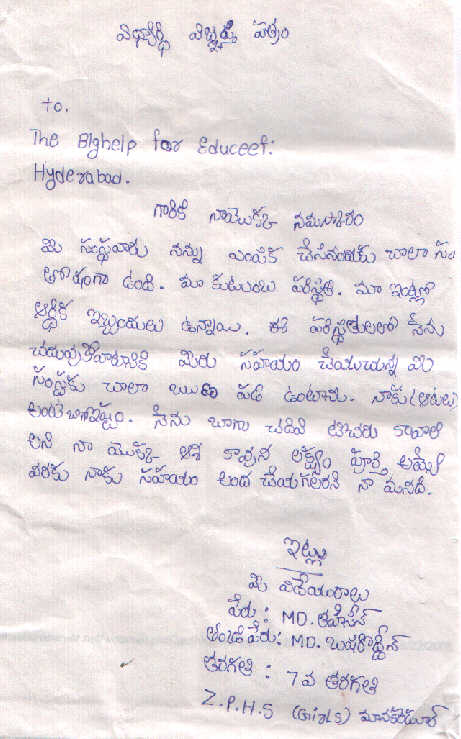 విద్యార్థి విజ్ఞప్తి పత్రం
to.
The Bighelp for Educeet:
Hyderabad.
గారికి నాయొక్క నమస్కారం
మీ సంస్థవారు నన్ను ఎంపిక చేసినందుకు చాలా సం
తోషంగా ఉంది. మా కుటుంబ పరిస్థితి. మా ఇంట్లో
ఆర్థిక ఇబ్బందులు ఉన్నాయి. ఈ పరిస్థితులలో నేను
చదువుకోవడానికి మీరు సహాయం చేయుచున్న మీ
సంస్థకు చాలా ఋణ పడి ఉంటాను. నాకు (ఆటలు)
అంటే బాగా ఇష్టం. నేను బాగా చదివి టీచరు కావాలి
అని నా యొక్క ఆశ కావున లక్ష్యం పూర్తి అయ్యే
వరకు నాకు సహాయం అంద చేయగలరని నా మనవి.
ఇట్లు
మీ విధేయురాలు
పేరు : MD.
తండ్రి పేరు: MD.
తరగతి : 7వ తరగతి
Z.P.H.S (Girls)